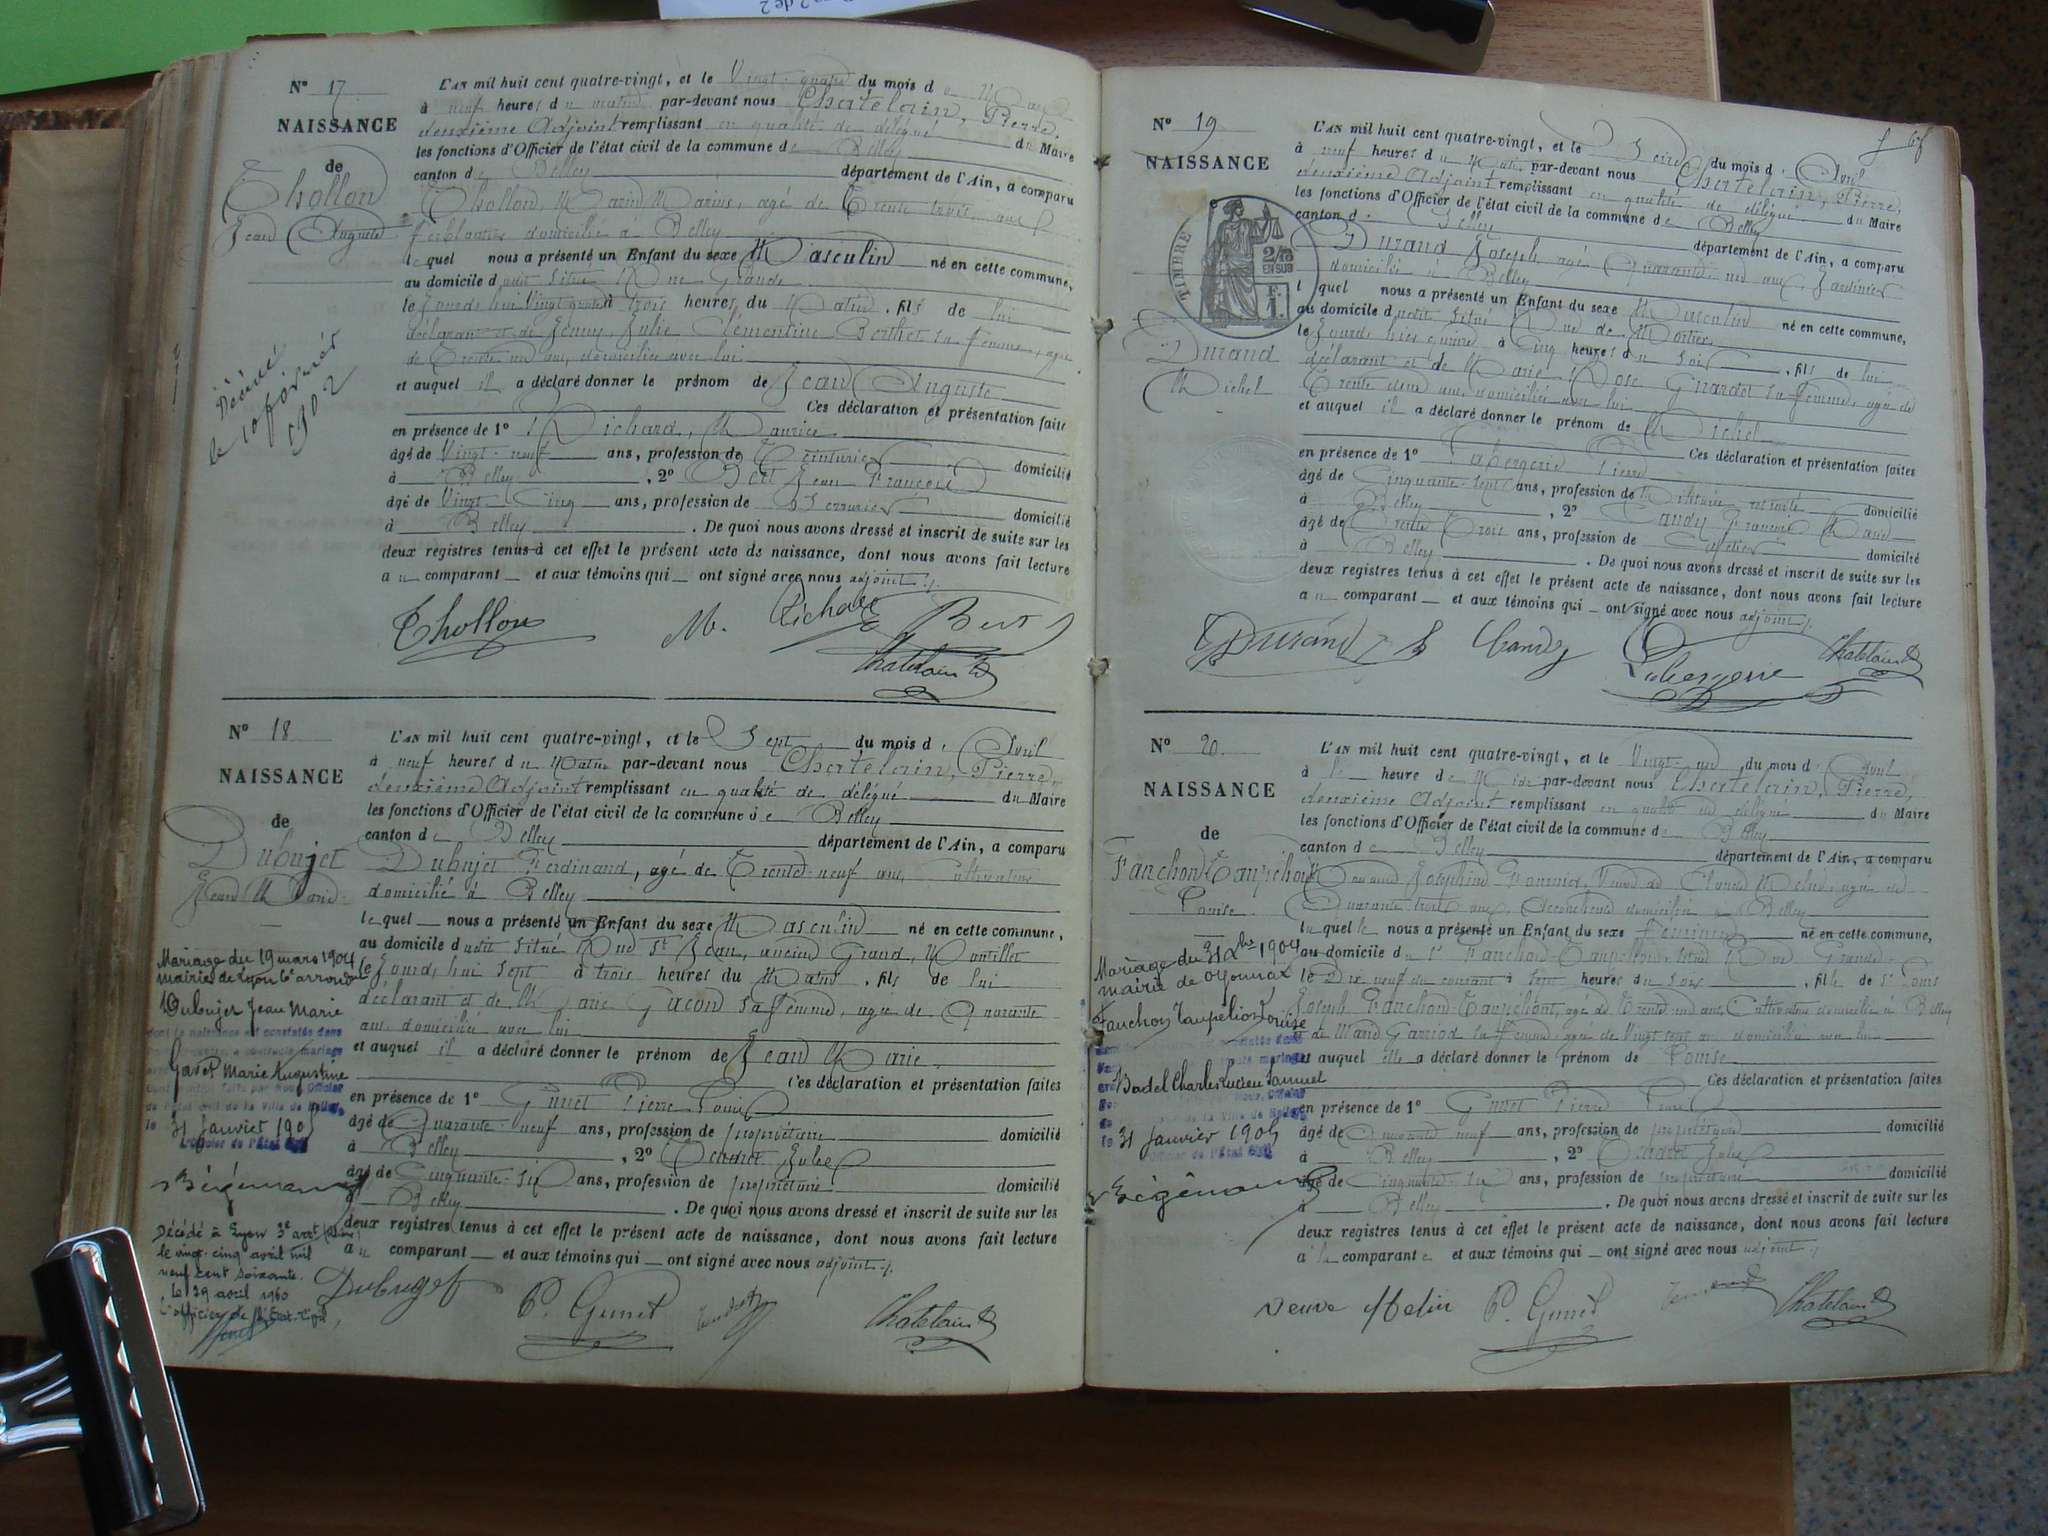 N° 17
NAISSANCE
de
Thollon
Jean Auguste
Décédé
le 10 février
1902
L'AN mil huit cent quatre-vingt, et le Vingt-quatre du mois de Mars
à neuf heures du matin par-devant nous Chatelain, Pierre,
deuxième Adjoint remplissant en qualité de délégué du Maire
les fonctions d'Officier de l'état civil de la commune de Belley
canton de Belley département de l'Ain, a comparu
Thollon, Marin Marius, âgé de Trente trois ans
ferblantier domicilié à Belley
lequel nous a présenté un Enfant du sexe Masculin né en cette commune,
au domicile dudit situé Rue Grande
le jourd'hui Vingt quatre à trois heures du Matin, fils de lui
déclarant et de Jenny Julie Clémentine Berthet sa femme, âgée
de Trente un ans, domiciliée avec lui
et auquel il a déclaré donner le prénom de Jean Auguste
Ces déclaration et présentation faite
en présence de 1° Richard, Maurice
âgé de Vingt-neuf ans, profession de Teinturier domicilié
à Belley, 2° Bert Jean François
âgé de Vingt-Cinq ans, profession de Serrurier domicilié
à Belley. De quoi nous avons dressé et inscrit de suite sur les
deux registres tenus à cet effet le présent acte de naissance, dont nous avons fait lecture
au comparant et aux témoins qui ont signé avec nous adjoint
Thollon M. Richard Bert
Chatelain
N° 18
NAISSANCE
de
Dubujet
Jean Marie
Mariage du 19 mars 1904
mairie de Lyon 6e arrond
Dubujet Jean Marie
dont la naissance est constatée dans
Gavet Marie Augustine
de l'état civil de la Ville de Belley
le 31 Janvier 1905
L'Officier de l'État Civil
Décédé à Lyon 3e arrt
le vingt-cinq avril mil
neuf cent soixante.
Le 29 avril 1960
L'officier de l'Etat-Civil
L'AN mil huit cent quatre-vingt, et le Sept du mois d'Avril
à neuf heures du Matin par-devant nous Chatelain, Pierre,
deuxième Adjoint remplissant en qualité de délégué du Maire
les fonctions d'Officier de l'état civil de la commune de Belley
canton de Belley département de l'Ain, a comparu
Dubujet Ferdinand, âgé de Trente-neuf ans, Cultivateur
domicilié à Belley
lequel nous a présenté un Enfant du sexe Masculin né en cette commune,
au domicile dudit situé Rue St Jean, ancien Grand
le Jourd'hui sept à trois heures du Matin, fils de lui
déclarant et de Marie Gacon sa femme, âgée de Quarante
ans domiciliée avec lui
et auquel il a déclaré donner le prénom de Jean Marie
Ces déclaration et présentation faites
en présence de 1° Gunet Pierre Louis
âgé de Quarante-neuf ans, profession de propriétaire domicilié
à Belley, 2° Tendret Jules
âgé de Cinquante-six ans, profession de propriétaire domicilié
à Belley. De quoi nous avons dressé et inscrit de suite sur les
deux registres tenus à cet effet le présent acte de naissance, dont nous avons fait lecture
au comparant et aux témoins qui ont signé avec nous adjoint
Dubuget P. Gunet Tendret Chatelain
N° 19
NAISSANCE
TIMBRE
2/10
EN SUS
F.
1.
Durand
Michel
L'AN mil huit cent quatre-vingt, et le Seize du mois d'Avril
à neuf heures du Matin par-devant nous Chatelain, Pierre,
deuxième Adjoint remplissant en qualité de délégué du Maire
les fonctions d'Officier de l'état civil de la commune de Belley
canton de Belley département de l'Ain, a comparu
Durand Joseph, âgé Quarante un ans, Jardinier
domicilié à Belley
lequel nous a présenté un Enfant du sexe Masculin né en cette commune,
au domicile dudit situé Rue de Mortier
le Jourd'hier quinze à Cinq heures du soir, fils de lui
déclarant et de Marie Rose Girardet sa femme, âgée de
Trente deux ans, domiciliée avec lui
et auquel il a déclaré donner le prénom de Michel
Ces déclaration et présentation faites
en présence de 1° Labergerie Pierre
âgé de Cinquante-sept ans, profession de Militaire retraité domicilié
à Belley, 2° Candy François
âgé de Trente Trois ans, profession de domicilié
à Belley. De quoi nous avons dressé et inscrit de suite sur les
deux registres tenus à cet effet le présent acte de naissance, dont nous avons fait lecture
au comparant et aux témoins qui ont signé avec nous adjoint
Durand Candy Labergerie Chatelain
N° 20
NAISSANCE
de
Fanchon Taupelion
Louise
Mariage du 31 Xbre 1904
mairie de Oyonnax
Fanchon Taupelion Louise
Badel Charles Lucien Samuel
de la Ville de Belley
le 31 Janvier 1905
Officier de l'État Civil
L'AN mil huit cent quatre-vingt, et le Vingt-un du mois d'Avril
à heure de par-devant nous Chatelain, Pierre,
deuxième Adjoint remplissant en qualité de délégué du Maire
les fonctions d'Officier de l'état civil de la commune de Belley
canton de Belley département de l'Ain, a comparu
Joséphine Veuve de Claude Melin, âgée de
Quarante trois ans, domiciliée à Belley
laquelle nous a présenté un Enfant du sexe féminin né en cette commune,
au domicile du Sr Fanchon-Taupelion, situé Rue Grande
le Dix neuf du courant à sept heures du soir, fille de Sr Louis
Joseph Fanchon Taupelion, âgé de Trente un ans, Cultivateur domicilié à Belley
et de sa femme âgée de Vingt sept ans domiciliée avec lui
et auquel elle a déclaré donner le prénom de Louise
Ces déclaration et présentation faites
en présence de 1° Gunet Pierre Louis
âgé de Quarante neuf ans, profession de propriétaire domicilié
à Belley, 2° Tendret Jules
âgé de Cinquante-six ans, profession de propriétaire domicilié
à Belley. De quoi nous avons dressé et inscrit de suite sur les
deux registres tenus à cet effet le présent acte de naissance, dont nous avons fait lecture
à la comparante et aux témoins qui ont signé avec nous adjoint
veuve Melin P. Gunet Tendret Chatelain